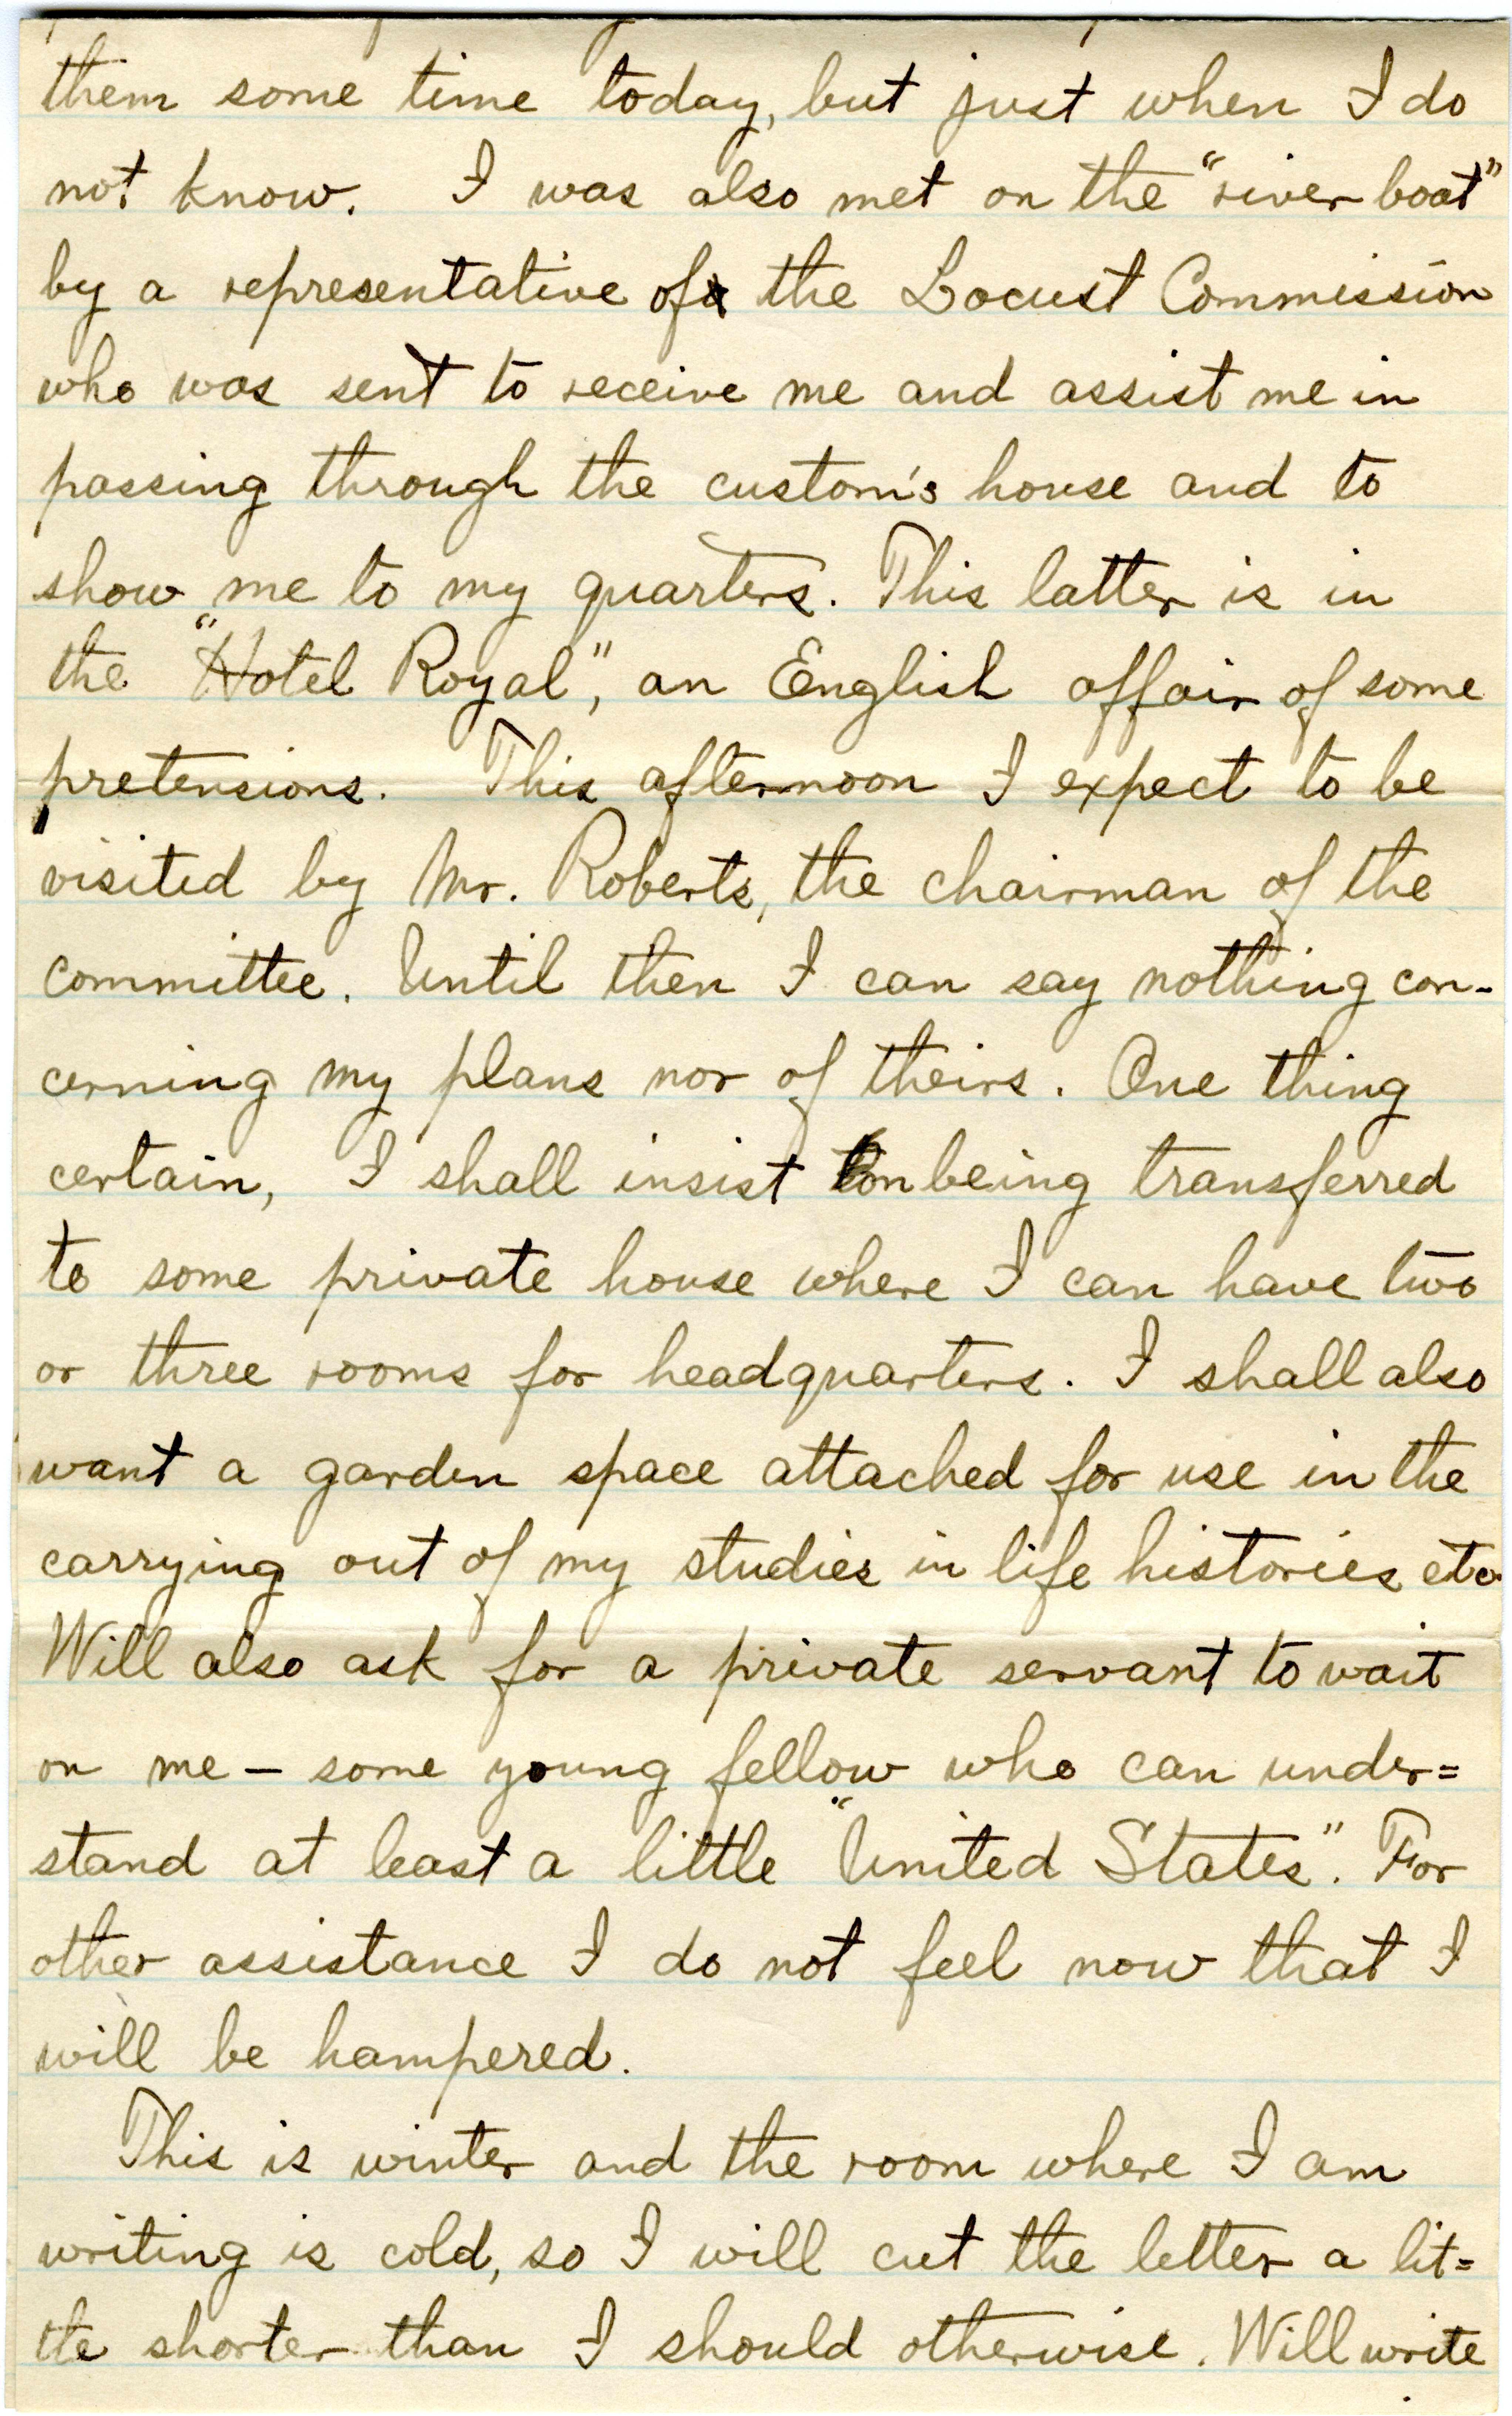 them some time today, but just when I do
not know. I was also met on the "river boat"
by a representative of the Locust Commission
who was sent to receive me and assist me in
passing through the custom's house and to
show me to my quarters. This latter is in
the "Hotel Royal", an English affair of some
pretensions. This afternoon I expect to be
visited by Mr. Roberts, the chairman of the
committee. Until then I can say nothing con-
cerning my plans nor of theirs. One thing
certain, I shall insist on being transferred
to some private house where I can have two
or three rooms for headquarters. I shall also
want a garden space attached for use in the
carrying out of my studies in life histories etc.
Will also ask for a private servant to wait
on me – some young fellow who can under=
stand at least a little "United States". For
other assistance I do not feel now that I
will be hampered.
This is winter and the room where I am
writing is cold, so I will cut the letter a lit=
tle shorter than I should otherwise. Will write